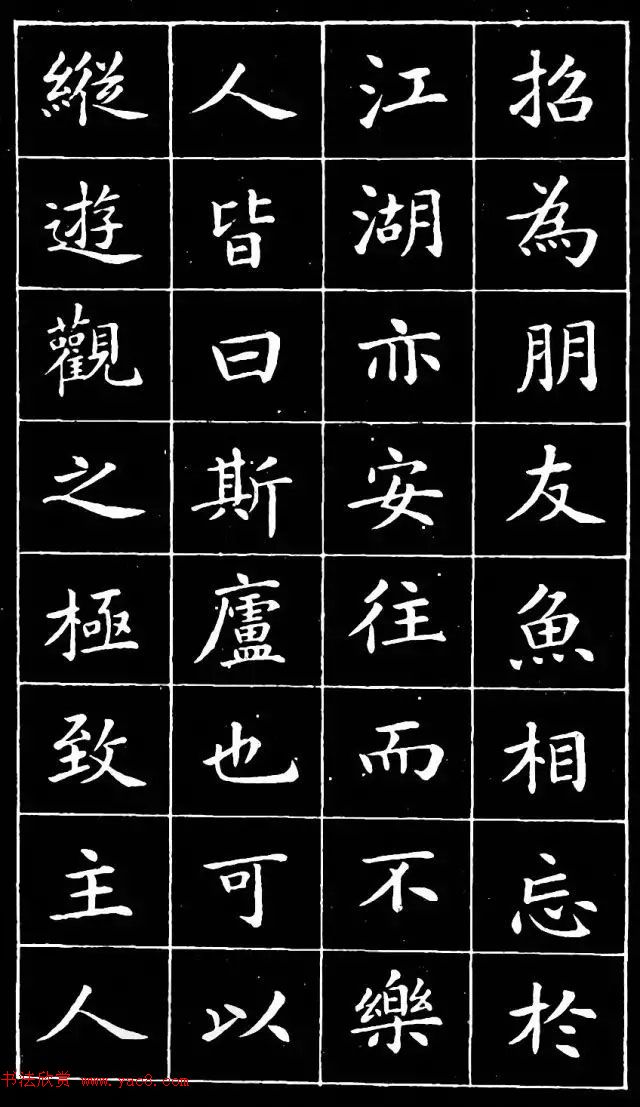 招為朋友魚相忘於
江湖亦安往而不樂
人皆曰斯廬也可以
縱遊觀之極致主人
书法欣赏 www.yac8.com